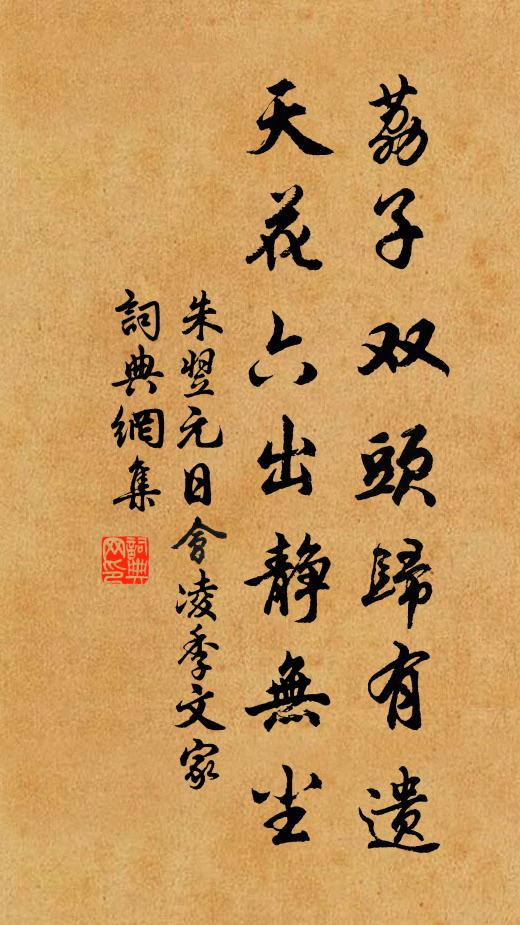 荔子双頭歸有遗
天花六出静無尘
朱翌元日會凌季文家
詞典網集
詞典网印